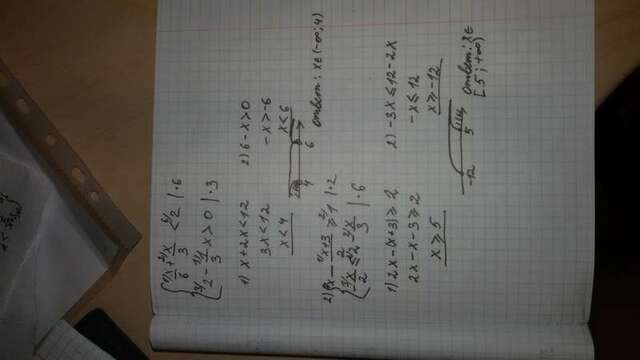 { 1/x/6 + 2/x/3 < 6/2 | ·6
{ 3/2 - 1/x/3 > 0 | ·3
1) x+2x<12
3x<12
x<4
2) 6-x>0
-x>-6
x<6
4 6
ответ: x∈(-∞;4)
2) { x - x+3/2 ≥ 1 | ·2
{ -x/2 ≤ 2 - x/3 | ·6
1) 2x-(x+3)≥2
2x-x-3≥2
x≥5
2) -3x≤12-2x
-x≤12
x≥-12
-12 5
ответ: x∈
[5;+∞)